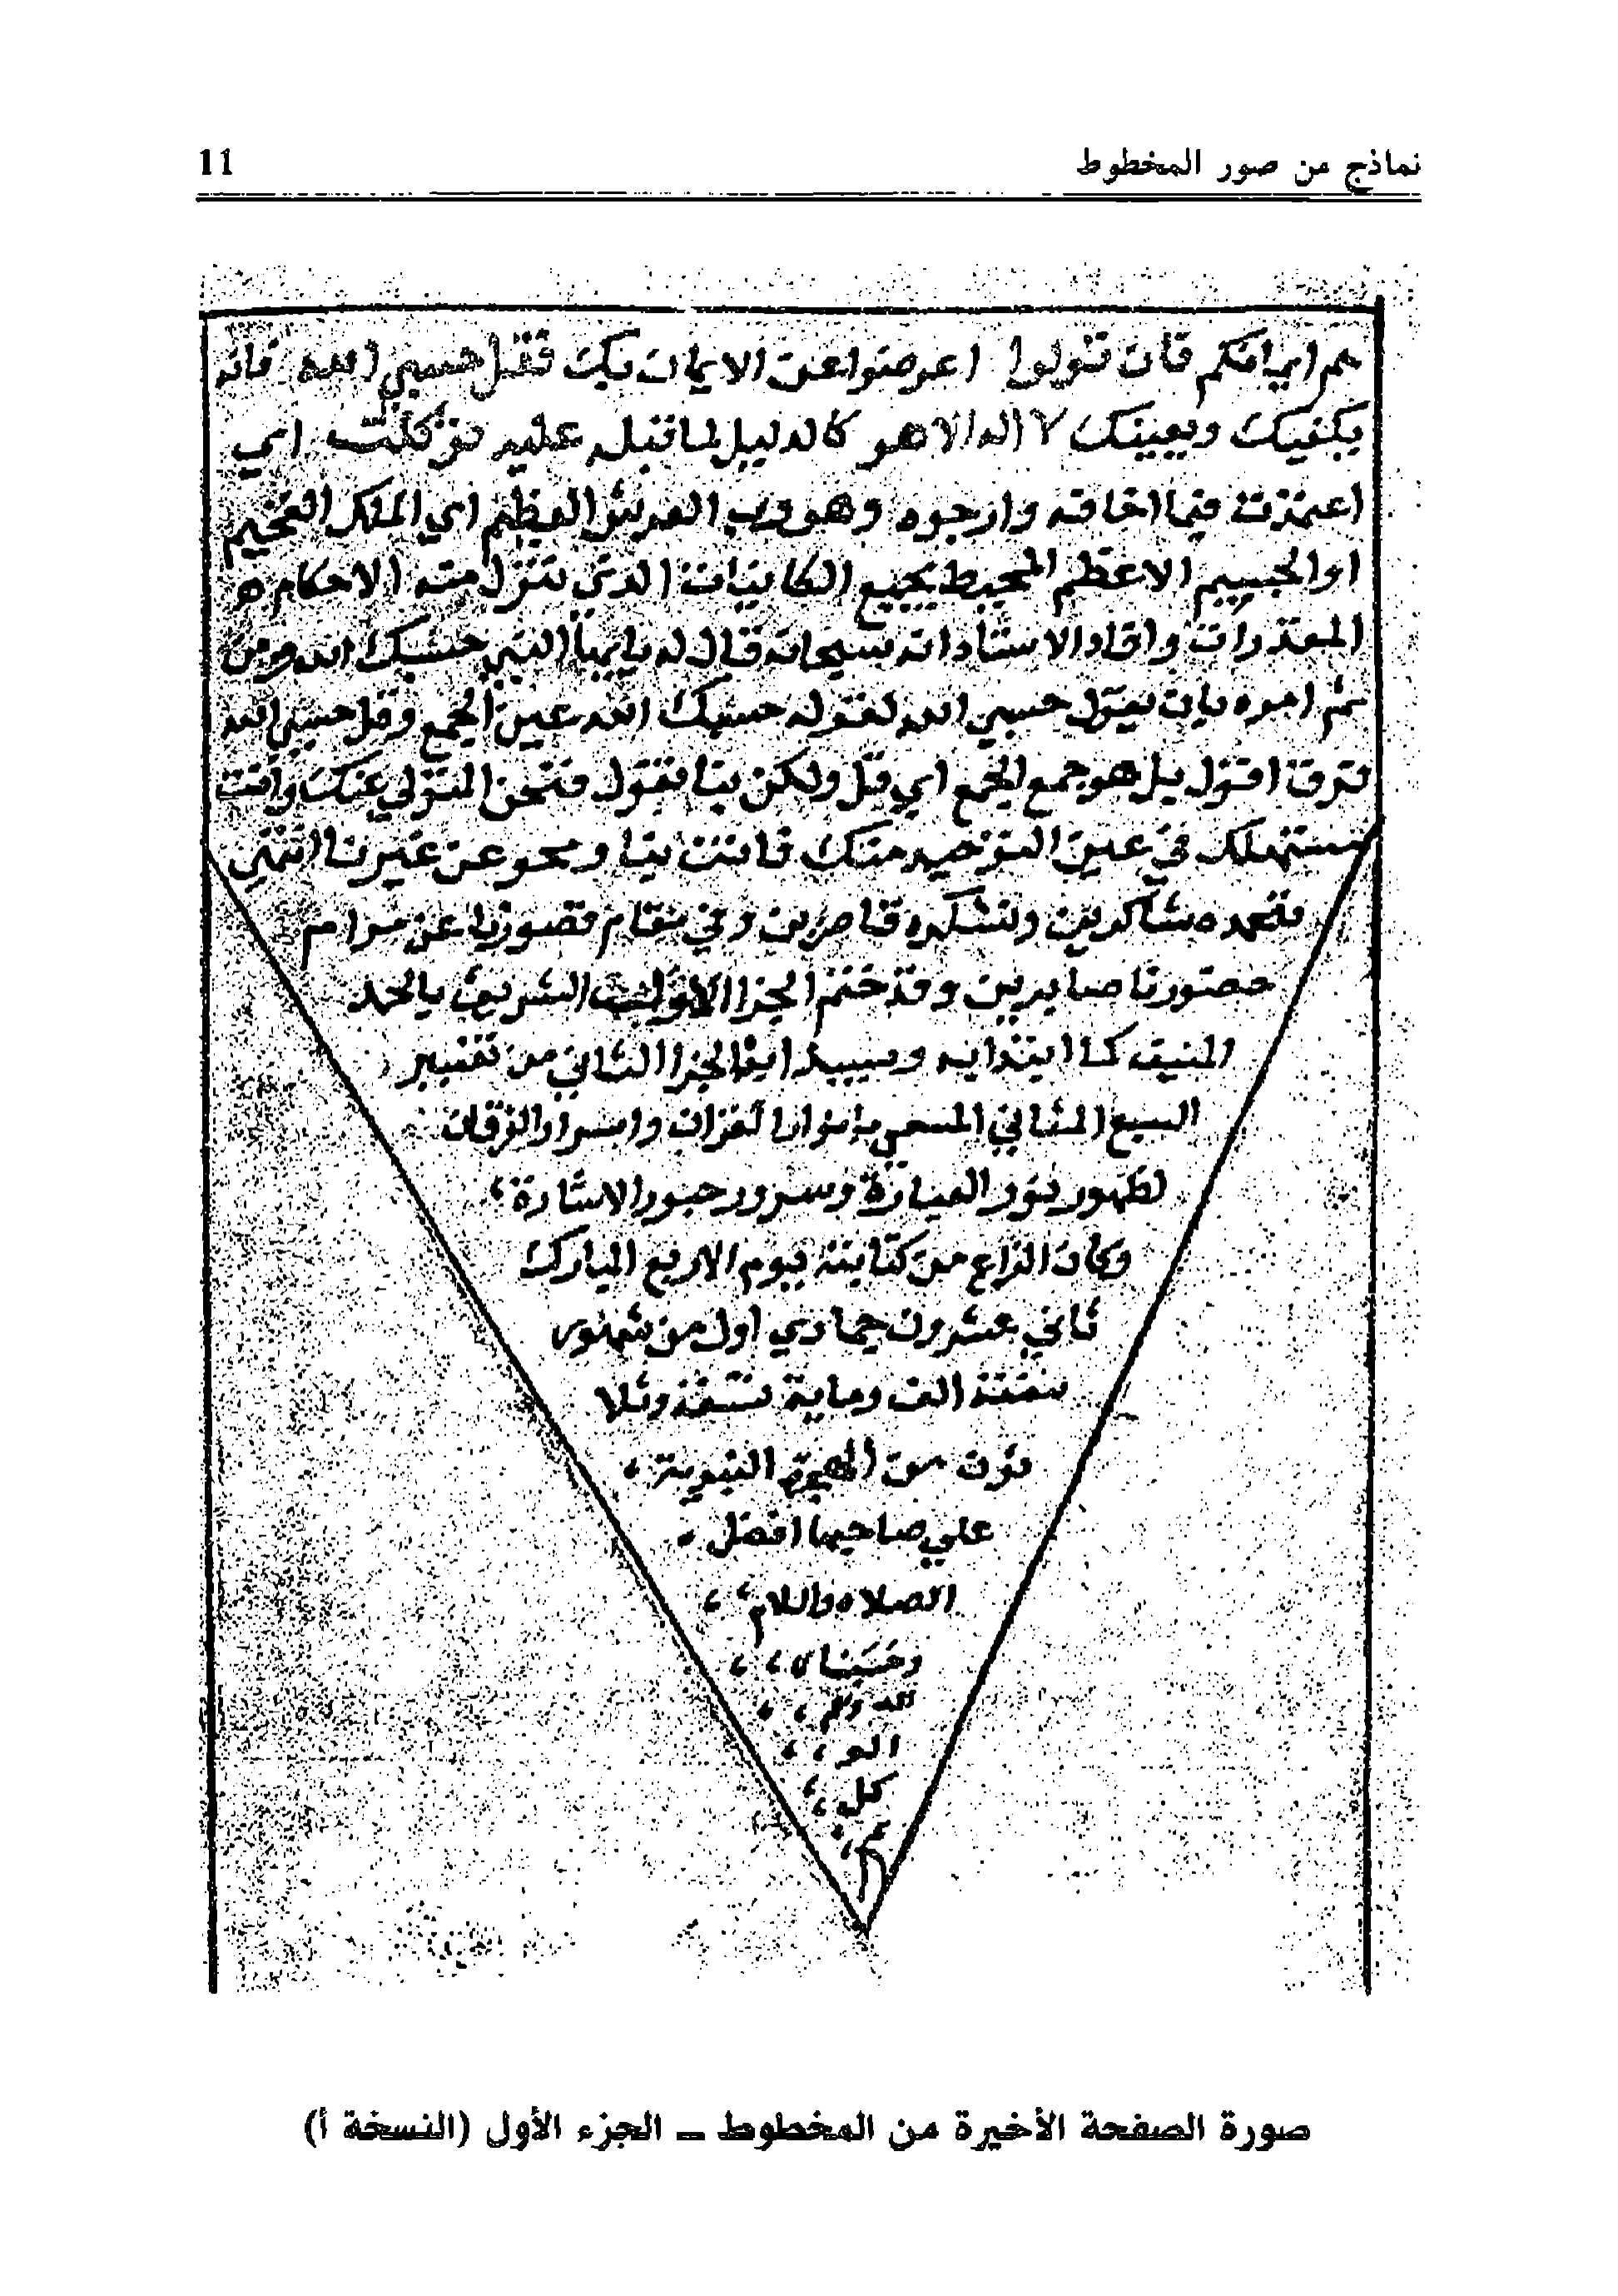 نماذج من صور المخطوط
11
فان تولوا اعرضوا عن الايمان بك فقل حسبي الله فانه
يكفيك ويعينك لا اله الا هو كالدليل لما قبله عليه توكلت اي
فيما اخافه وارجوه وهو رب العرش العظيم اي الملك الفخيم
او الجسيم الاعظم المحيط بجميع الكاينات الذي تنزل منه الاحكام
وافاد الاستاد انه سبحانه قال له يايها النبي حسبك الله
ثم امره بان يقول حسبي الله لقوله حسبك الله عين الجمع وقل حسبي الله
فرق اقول بل هو جمع الجمع اي قل ولكن بنا فنحن المتولي عنك وانت
مستهلك في عين التوحيد منك فانت بنا ومحو عن غيرنا انتهي
فنحمده شاكرين ونشكره وفي مقام قصورنا عن مرام
حضورنا صابرين وقد ختم الجزا الاول الشريف بالحمد
المنيف كما ابتدا به الجزا الثاني من تفسير
السبع المثاني المسمي بانوار القران واسرار الفرقان
لظهور نور العبارة وسرور حبور الاشارة
وكان الفراغ من كتابته يوم الاربع المبارك
ثاني عشرون جمادي اول من شهور
سنة الف وماية وثلا
ثون من الهجرة النبوية
علي صاحبها افضل
الصلاه والسلام
وحسبنا
الله ونعم
الو
كل
صورة الصفحة الأخيرة من المخطوط ـ الجزء الأول (النسخة أ)